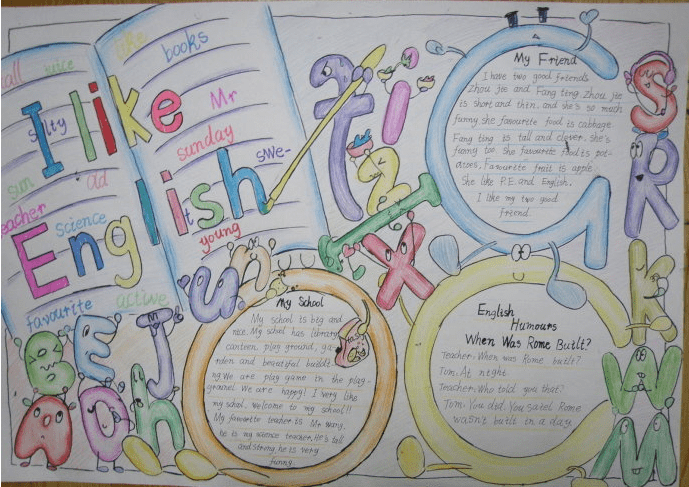 I like
English
call juice
like
books
salty
Mr
sunday
sun
ad
swe-
teacher
science
it
young
favourite
active
My Friend
I have two good friends
Zhou jie and Fang ting Zhou jie
is short and thin. and she's so much
funny she favourite food is cabbage.
Fang ting is tall and clever. she's
funny too. She favourite food is pot-
atoes, Favourite fruit is apple.
She like P.E. and English.
I like my two good
Friend.
My School
My school is big and
nice. My school has library
canteen, play ground, ga-
rden and beautiful buildi-
ng. We are play game in the play-
ground. We are happy! I very like
my school. welcome to my school!!
My favourite teacher is Mr Wang,
he is my science teacher. He's tall
and strong, he is very
funny.
English
Humours
When Was Rome Built?
Teacher: When was Rome built?
Tom: At night.
Teacher: Who told you that?
Tom: You did. You saied Rome
wasn't built in a day.
t i z
G
S
R
x
K
W
M
u n
B E J
A O h